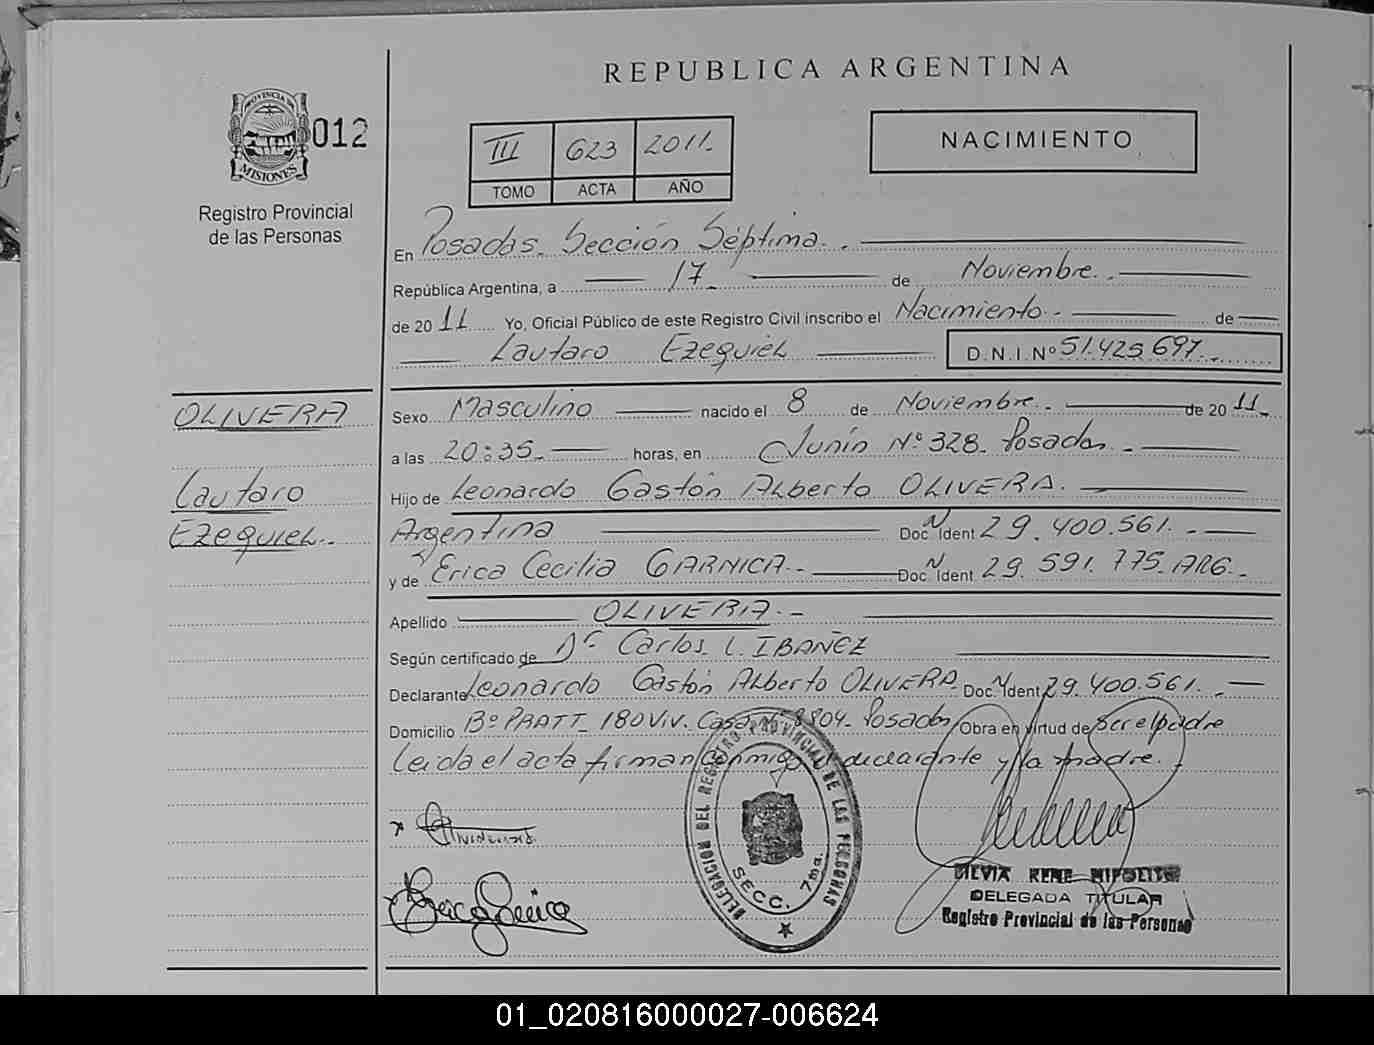 REPUBLICA ARGENTINA
PROVINCIA DE
MISIONES
012
Registro Provincial
de las Personas
III 623 2011.
TOMO ACTA AÑO
NACIMIENTO
En Posadas. Sección Séptima.
República Argentina, a 17 de Noviembre.
de 2011 Yo, Oficial Público de este Registro Civil inscribo el Nacimiento de
Lautaro Ezequiel D.N.I.Nº 51.425.697.
OLIVERA
Lautaro
Ezequiel.
Sexo Masculino nacido el 8 de Noviembre. de 2011.
a las 20:35. horas, en Junín Nº 328. Posadas.
Hijo de Leonardo Gastón Alberto OLIVERA.
Argentina Doc. N Ident 29.400.561.
y de Erica Cecilia GARNICA. Doc. N Ident 29.591.775. ARG.
Apellido OLIVERA.
Según certificado de Dr. Carlos L. IBAÑEZ
Declarante Leonardo Gastón Alberto OLIVERA. Doc. N Ident 29.400.561.
Domicilio Bº PRATT_ 180 Viv. Casa Nº 8804. Posadas Obra en virtud de ser el padre
Leida el acta firman conmigo declarante y la madre.
DELEGACION DEL REGISTRO PROVINCIAL DE LAS PERSONAS
SECC. 7ma.
SILVIA RENE HIPOLITO
DELEGADA TITULAR
Registro Provincial de las Personas
01_020816000027-006624